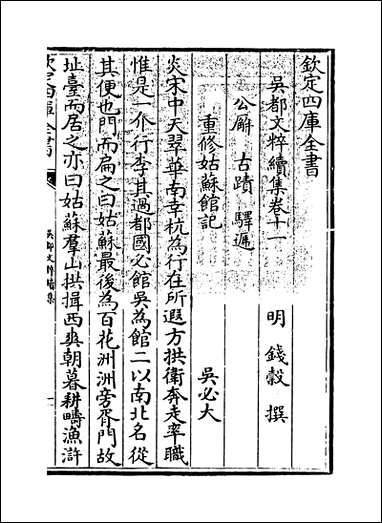 欽定四庫全書
吳都文粹續集卷十一
明 錢榖 撰
公廨 古蹟 驛遞
重修姑蘇館記 吳必大
炎宋中天翠華南幸杭為行在所遐方拱衛奔走率職
惟是一介行李其過都國必館吳為館二以南北名從
其便也門而扁之曰姑蘇最後為百花洲洲旁胥門故
址臺而居之亦曰姑蘇羣山拱揖西爽朝暮耕疇漁滸
欽定四庫全書
吳都文粹續集
一